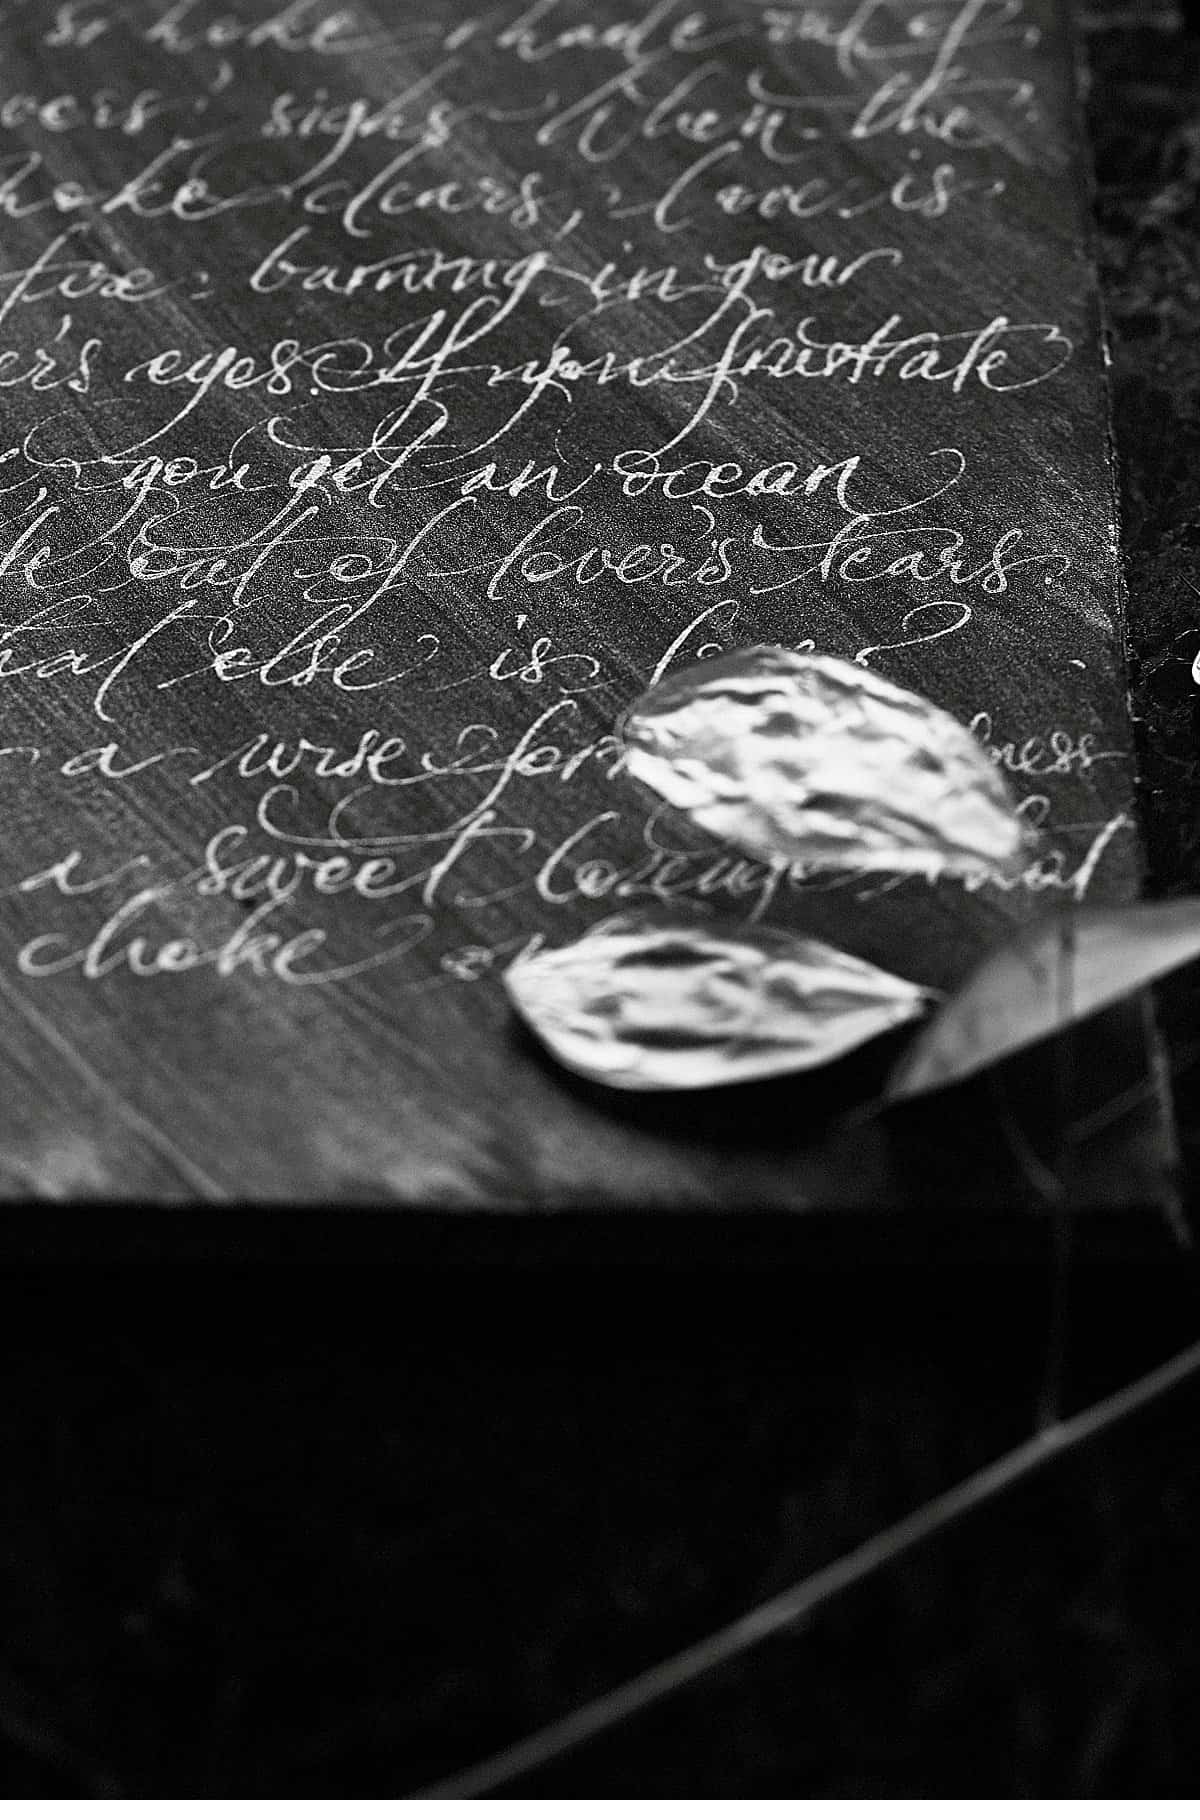 is smoke made out of
overs' sighs. When the
moke clears, love is
fire burning in your
er's eyes. If you frustrate
, you get an ocean
de out of lover's tears.
hat else is
a wise form
a sweet lozenge that
choke